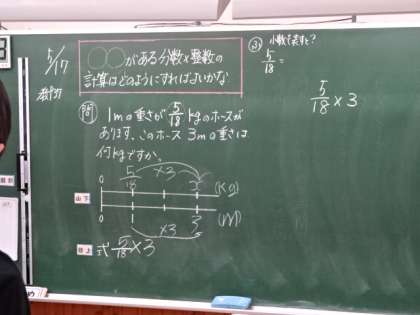 5/17
○○がある分数×整数の
計算はどのようにすればよいかな
問 1mの重さが5/18kgのホースが
あります。このホース 3mの重さは
何kgですか。
5/18 ×3 x
0 (kg)
山下
0 1 3 (m)
×3
式 5/18×3
小数で表すと?
5/18=
5/18×3